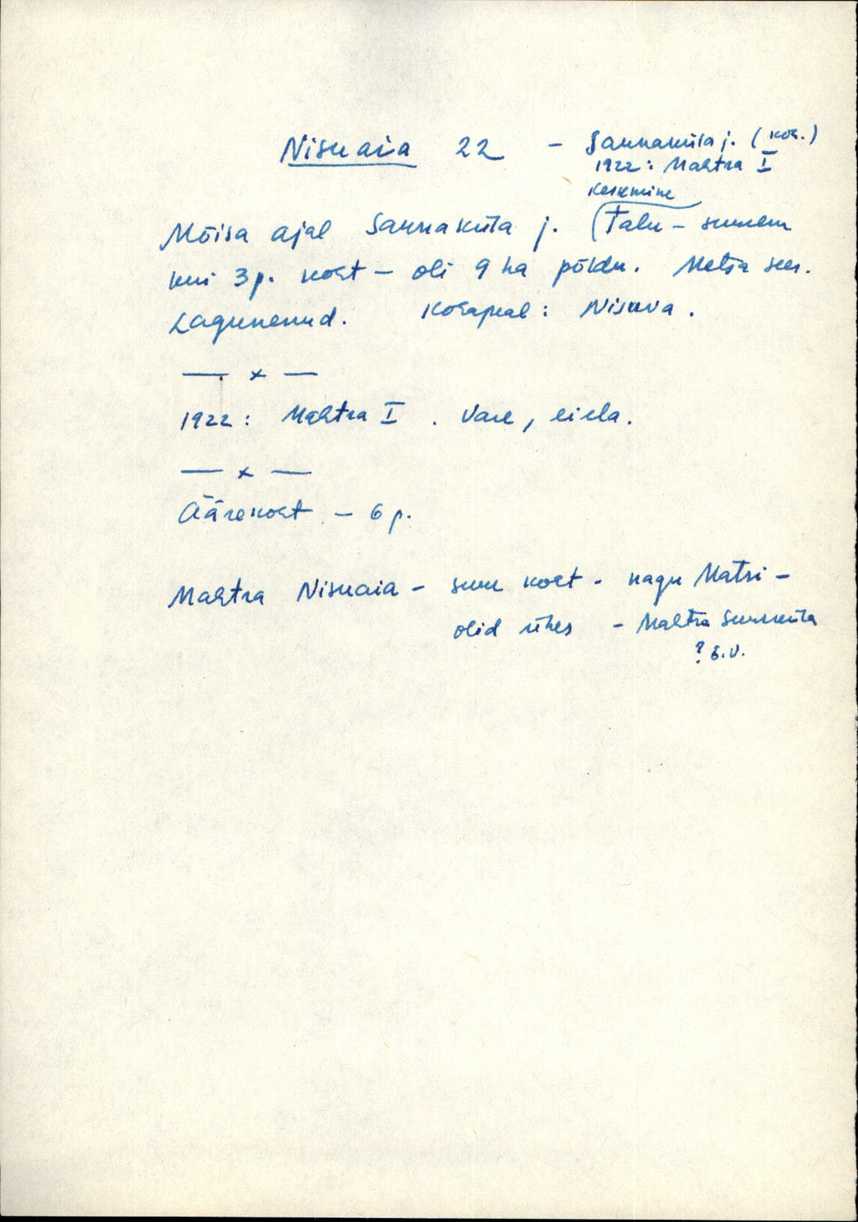 Nisuaia 22 – Saunaküla j. (koz.)
1922: Mahtra I
Keskmine
Mõisa ajal Saunaküla j. (Talu – suurem
kui 3 p. koht – oli 9 ha põldu. Metsa sees.
Lagunenud. Kohapeal: Nisuva.
— x —
1922: Mahtra I . Vare, ei ela.
— x —
Äärekoht – 6 p.
Mahtra Nisuaia – suur koht – nagu Matsi –
olid ühes – Mahtra Suurküla
? E.V.